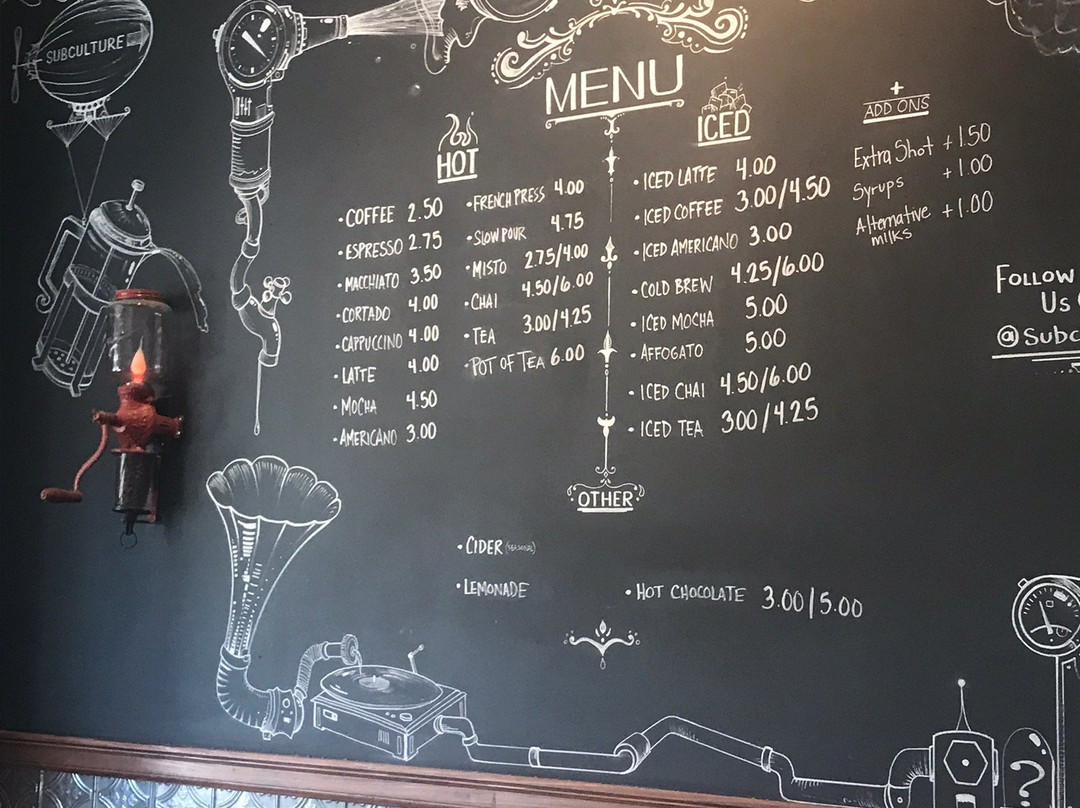 SUBCULTURE
MENU
HOT
• COFFEE 2.50
• ESPRESSO 2.75
• MACCHIATO 3.50
• CORTADO 4.00
• CAPPUCCINO 4.00
• LATTE 4.00
• MOCHA 4.50
• AMERICANO 3.00
• FRENCH PRESS 4.00
• SLOW POUR 4.75
• MISTO 2.75/4.00
• CHAI 4.50/6.00
• TEA 3.00/4.25
• POT OF TEA 6.00
ICED
• ICED LATTE 4.00
• ICED COFFEE 3.00/4.50
• ICED AMERICANO 3.00
• COLD BREW 4.25/6.00
• ICED MOCHA 5.00
• AFFOGATO 5.00
• ICED CHAI 4.50/6.00
• ICED TEA 3.00/4.25
+
ADD ONS
Extra Shot +1.50
Syrups +1.00
Alternative +1.00
milks
FOLLOW
US
@SUBC
OTHER
• CIDER (SEASONAL)
• LEMONADE
• HOT CHOCOLATE 3.00/5.00
?